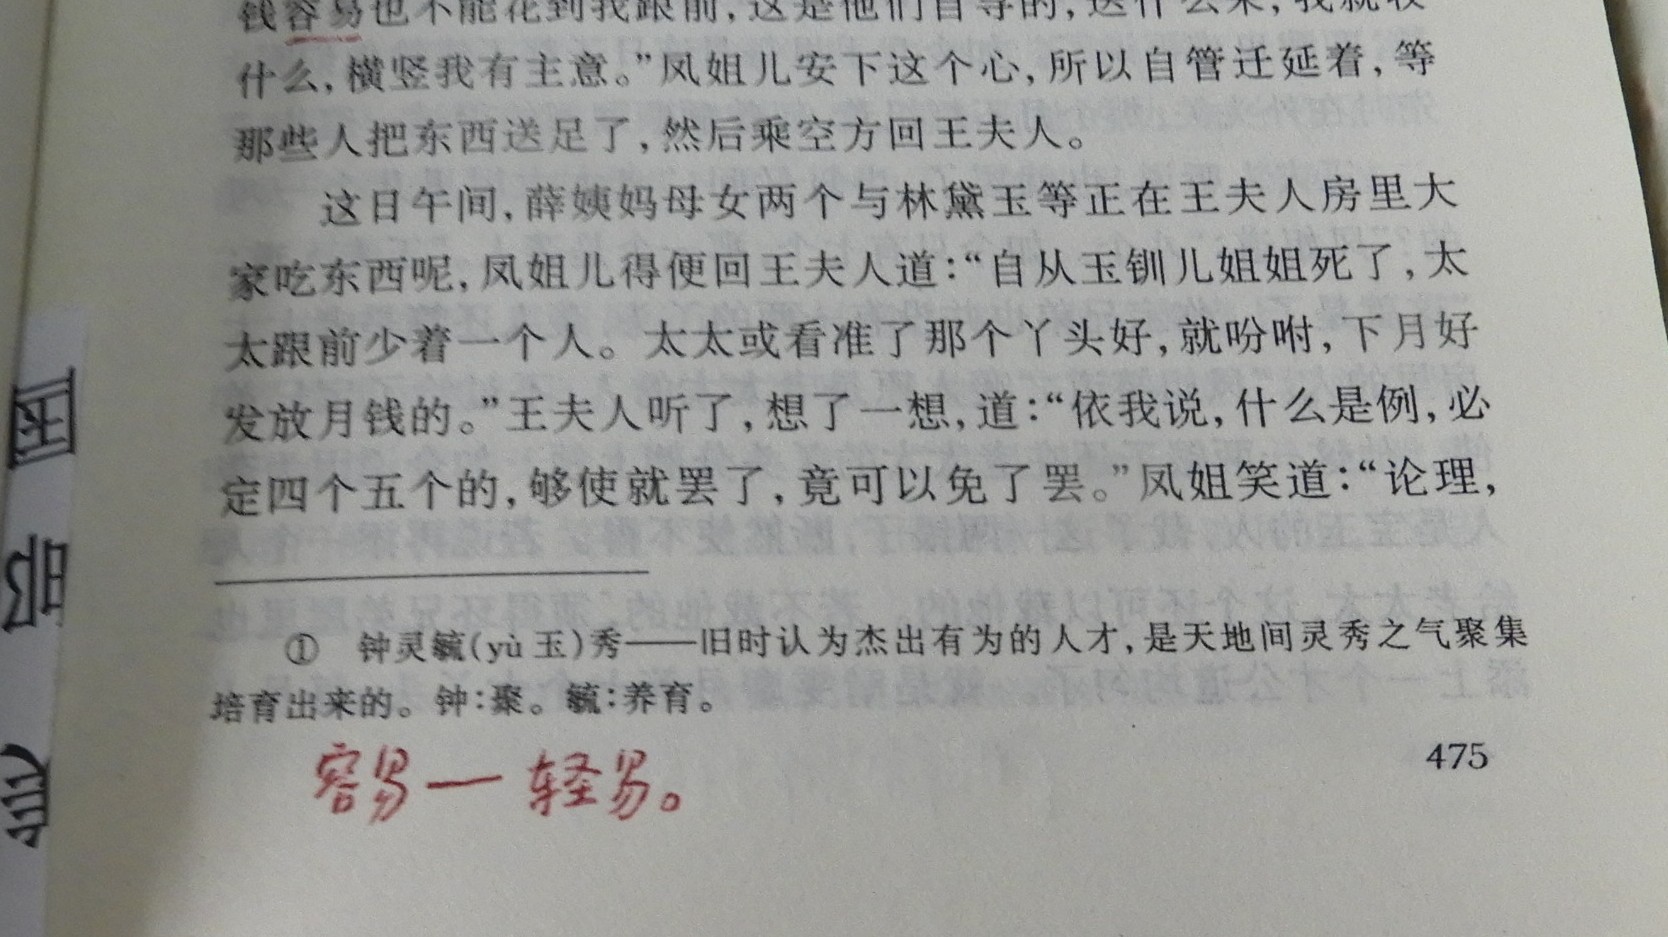 钱容易也不能花到我跟前,这是他们自寻的,送什么来,我就收
什么,横竖我有主意。”凤姐儿安下这个心,所以自管迁延着,等
那些人把东西送足了,然后乘空方回王夫人。
这日午间,薛姨妈母女两个与林黛玉等正在王夫人房里大
家吃东西呢,凤姐儿得便回王夫人道:“自从玉钏儿姐姐死了,太
太跟前少着一个人。太太或看准了那个丫头好,就吩咐,下月好
发放月钱的。”王夫人听了,想了一想,道:“依我说,什么是例,必
定四个五个的,够使就罢了,竟可以免了罢。”凤姐笑道:“论理,
① 钟灵毓(yù 玉)秀——旧时认为杰出有为的人才,是天地间灵秀之气聚集
培育出来的。钟:聚。毓:养育。
475
容易—轻易。